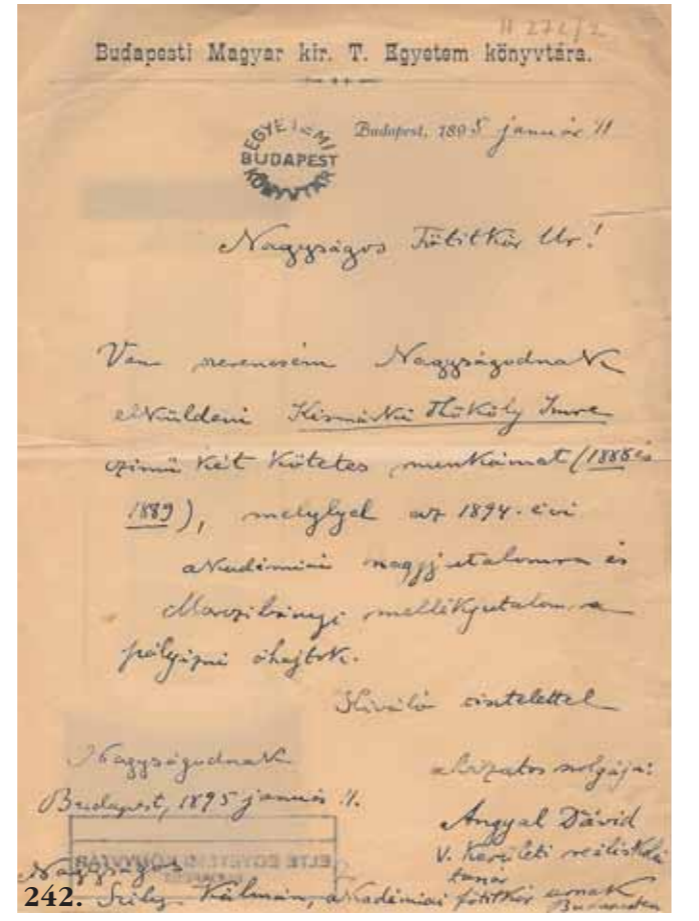 H 272/2
Budapesti Magyar kir. T. Egyetem könyvtára.
EGYETEMI
BUDAPEST
KÖNYVTÁR
Budapest, 1895 január 11
Nagyságos Főtitkár Ur!
Van szerencsém Nagyságodnak
elküldeni Késmárki Thököly Imre
czimű két kötetes munkámat (1888 és
1889), melylyel az 1894. évi
akadémiai nagyjutalomra és
Marczibányi mellékjutalomra
pályázni óhajtok.
Kiváló tisztelettel
Nagyságodnak
alázatos szolgája:
Budapest, 1895 január 11.
Angyal Dávid
V. kerületi reáliskolai
tanár
ELTE EGYETEMI KÖNYVTÁR
Nagyságos
242. Szily Kálmán, akadémiai főtitkár urnak
Budapesten